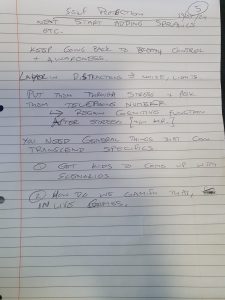 SELF PROTECTION
5
NEXT START ADDING SPRAWLS
ETC.
KEEP GOING BACK TO BREATH CONTROL
+ AWARENESS.
LAYER IN DISTRACTIONS NOISE, LIGHTS
PUT THEM THROUGH STRESS + ASK
THEM TELEPHONE NUMBER
↳ REGAIN COGNITIVE FUNCTION
AFTER STRESS.
YOU NEED GENERAL THINGS THAT CAN
TRANSCEND SPECIFICS
① GET KIDS TO COME UP WITH
SCENARIOS
② HOW DO WE GAMIFY THAT,
IN LIVE GAMES.